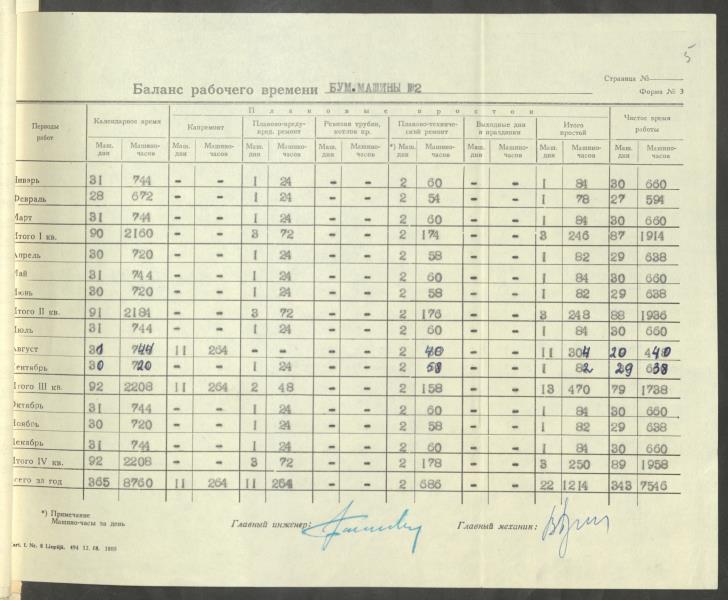 5
Страница №
Баланс рабочего времени БУМ.МАШИНЫ №2
Форма № 3
Периоды работ | Календарное время | Плановые простои | Чистое время работы
Капремонт | Планово-преду- | Ревизия турбин, | Планово-техниче- | Выходные дни | Итого
вред. ремонт | котлов пр. | ский ремонт | и праздники | простой
Маш. дни | Машино-часов | Маш. дни | Машино-часов | Маш. дни | Машино-часов | Маш. дни | Машино-часов | *) Маш. дни | Машино-часов | Маш. дни | Машино-часов | Маш. дни | Машино-часов | Маш. дни | Машино-часов
Январь 31 744 - - 1 24 - - 2 60 - - 1 84 30 660
Февраль 28 672 - - 1 24 - - 2 54 - - 1 78 27 594
Март 31 744 - - 1 24 - - 2 60 - - 1 84 30 660
Итого I кв. 90 2160 - - 3 72 - - 2 174 - - 3 246 87 1914
Апрель 30 720 - - 1 24 - - 2 58 - - 1 82 29 638
Май 31 744 - - 1 24 - - 2 60 - - 1 84 30 660
Июнь 30 720 - - 1 24 - - 2 58 - - 1 82 29 638
Итого II кв. 91 2184 - - 3 72 - - 2 176 - - 3 248 88 1936
Июль 31 744 - - 1 24 - - 2 60 - - 1 84 30 660
Август 31 744 11 264 - - - - 2 40 - - 11 304 20 440
Сентябрь 30 720 - - 1 24 - - 2 58 - - 1 82 29 638
Итого III кв. 92 2208 11 264 2 48 - - 2 158 - - 13 470 79 1738
Октябрь 31 744 - - 1 24 - - 2 60 - - 1 84 30 660
Ноябрь 30 720 - - 1 24 - - 2 58 - - 1 82 29 638
Декабрь 31 744 - - 1 24 - - 2 60 - - 1 84 30 660
Итого IV кв. 92 2208 - - 3 72 - - 2 178 - - 3 250 89 1958
Всего за год 365 8760 11 264 11 264 - - 2 686 - - 22 1214 343 7546
*) Примечание
Машино-часы за день
Главный инженер:
Главный механик:
art. I. Nr. 8 Liepājā. 494 12. 08. 1969